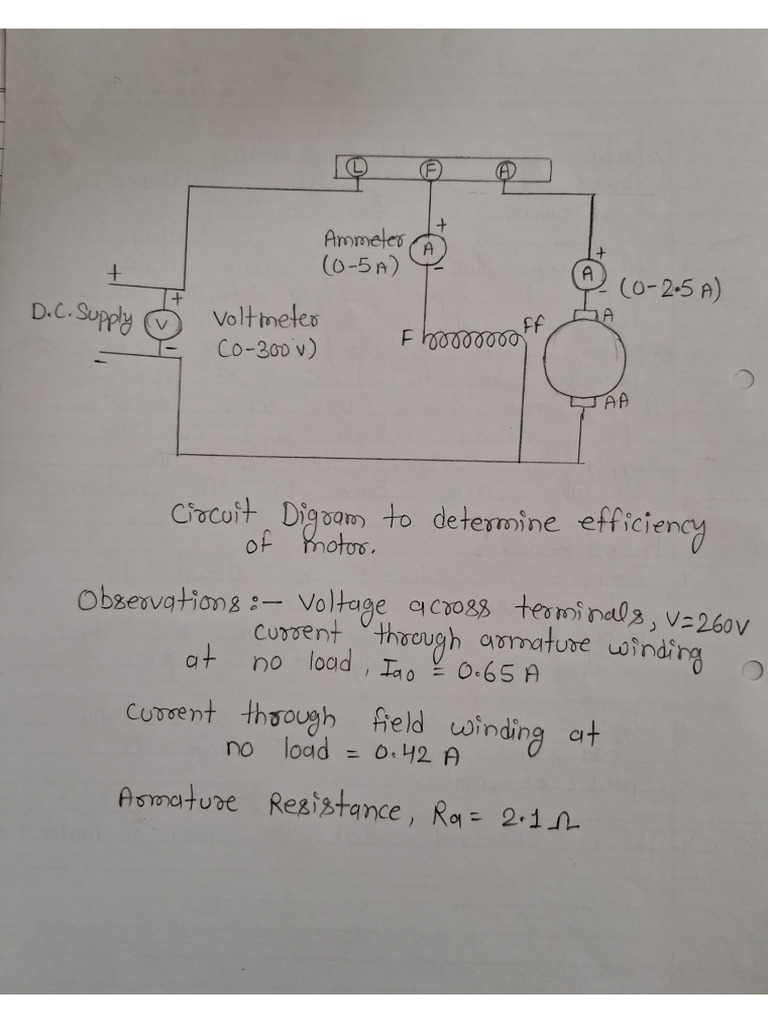 L F A
Ammeter A + -
(0-5A)
A + - (0-2.5A)
+
D.C. Supply V + - Voltmeter
(0-300V)
-
F FF
A
AA
Circuit Digram to determine efficiency
of motor.
Observations :- Voltage across terminals, V=260V
current through armature winding
at no load, Iao = 0.65 A
Current through field winding at
no load = 0.42 A
Armature Resistance, Ra = 2.1Ω